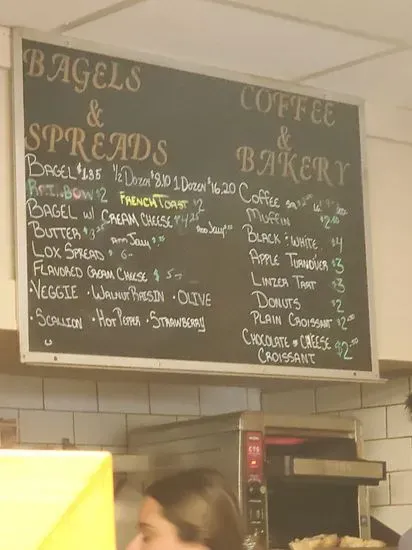 BAGELS
&
SPREADS
BAGEL $1.35 1/2 DOZEN $8.10 1 DOZEN $16.20
RAINBOW $2 FRENCH TOAST $2
BAGEL w/ CREAM CHEESE $4.25
BUTTER $3.25 ADD JELLY
LOX SPREAD $6-
FLAVORED CREAM CHEESE $5-
·VEGGIE ·WALNUT RAISIN ·OLIVE
·SCALLION ·HOT PEPPER ·STRAWBERRY
COFFEE
&
BAKERY
COFFEE
MUFFIN
BLACK & WHITE $4
APPLE TURNOVER $3
LINZER TART $3
DONUTS $2
PLAIN CROISSANT $2
CHOCOLATE OR CHEESE $2
CROISSANT